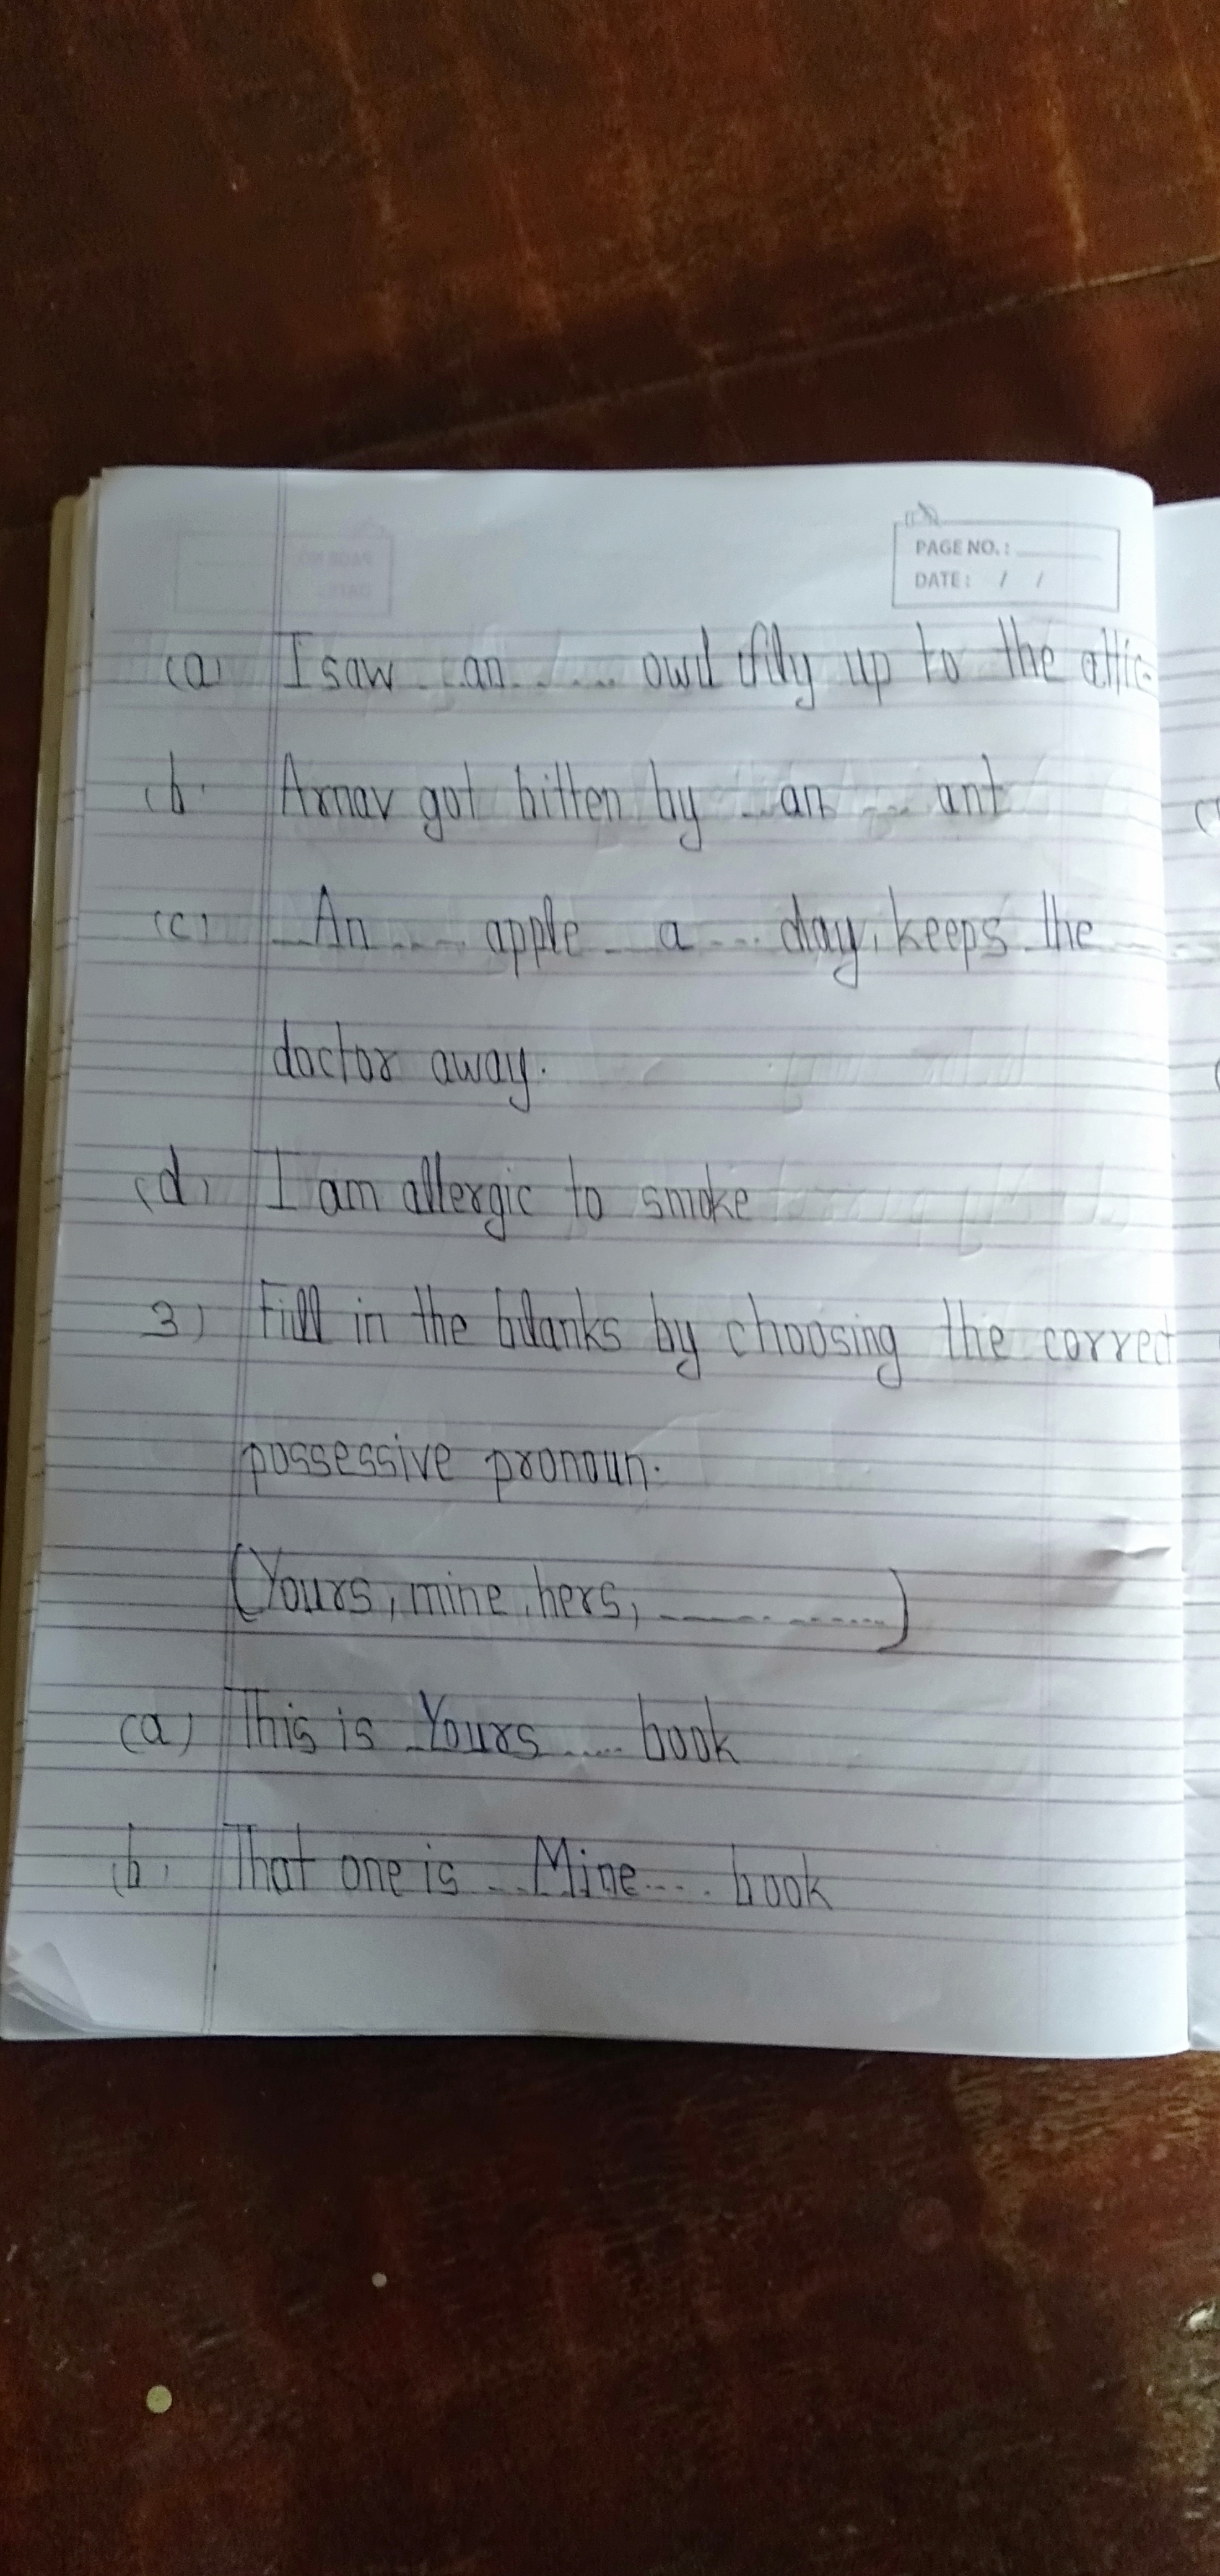 PAGE NO. :
DATE : / /
(a) I saw an owl fly up to the attic
(b) Arnav got bitten by an ant
(c) An apple a day, keeps the
doctor away.
(d) I am allergic to smoke
3) Fill in the blanks by choosing the correct
possessive pronoun.
(Yours, mine, hers, ............)
(a) This is Yours .... book
(b) That one is Mine.... book